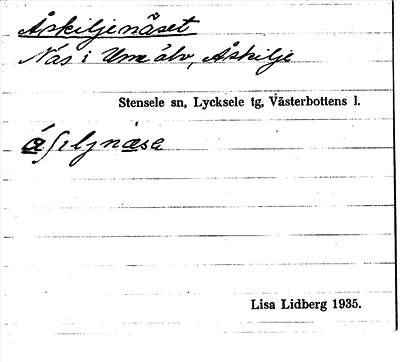 Åskiljenäset
Näs i Ume älv, Åskilje
Stensele sn, Lycksele tg, Västerbottens l.
Lisa Lidberg 1935.